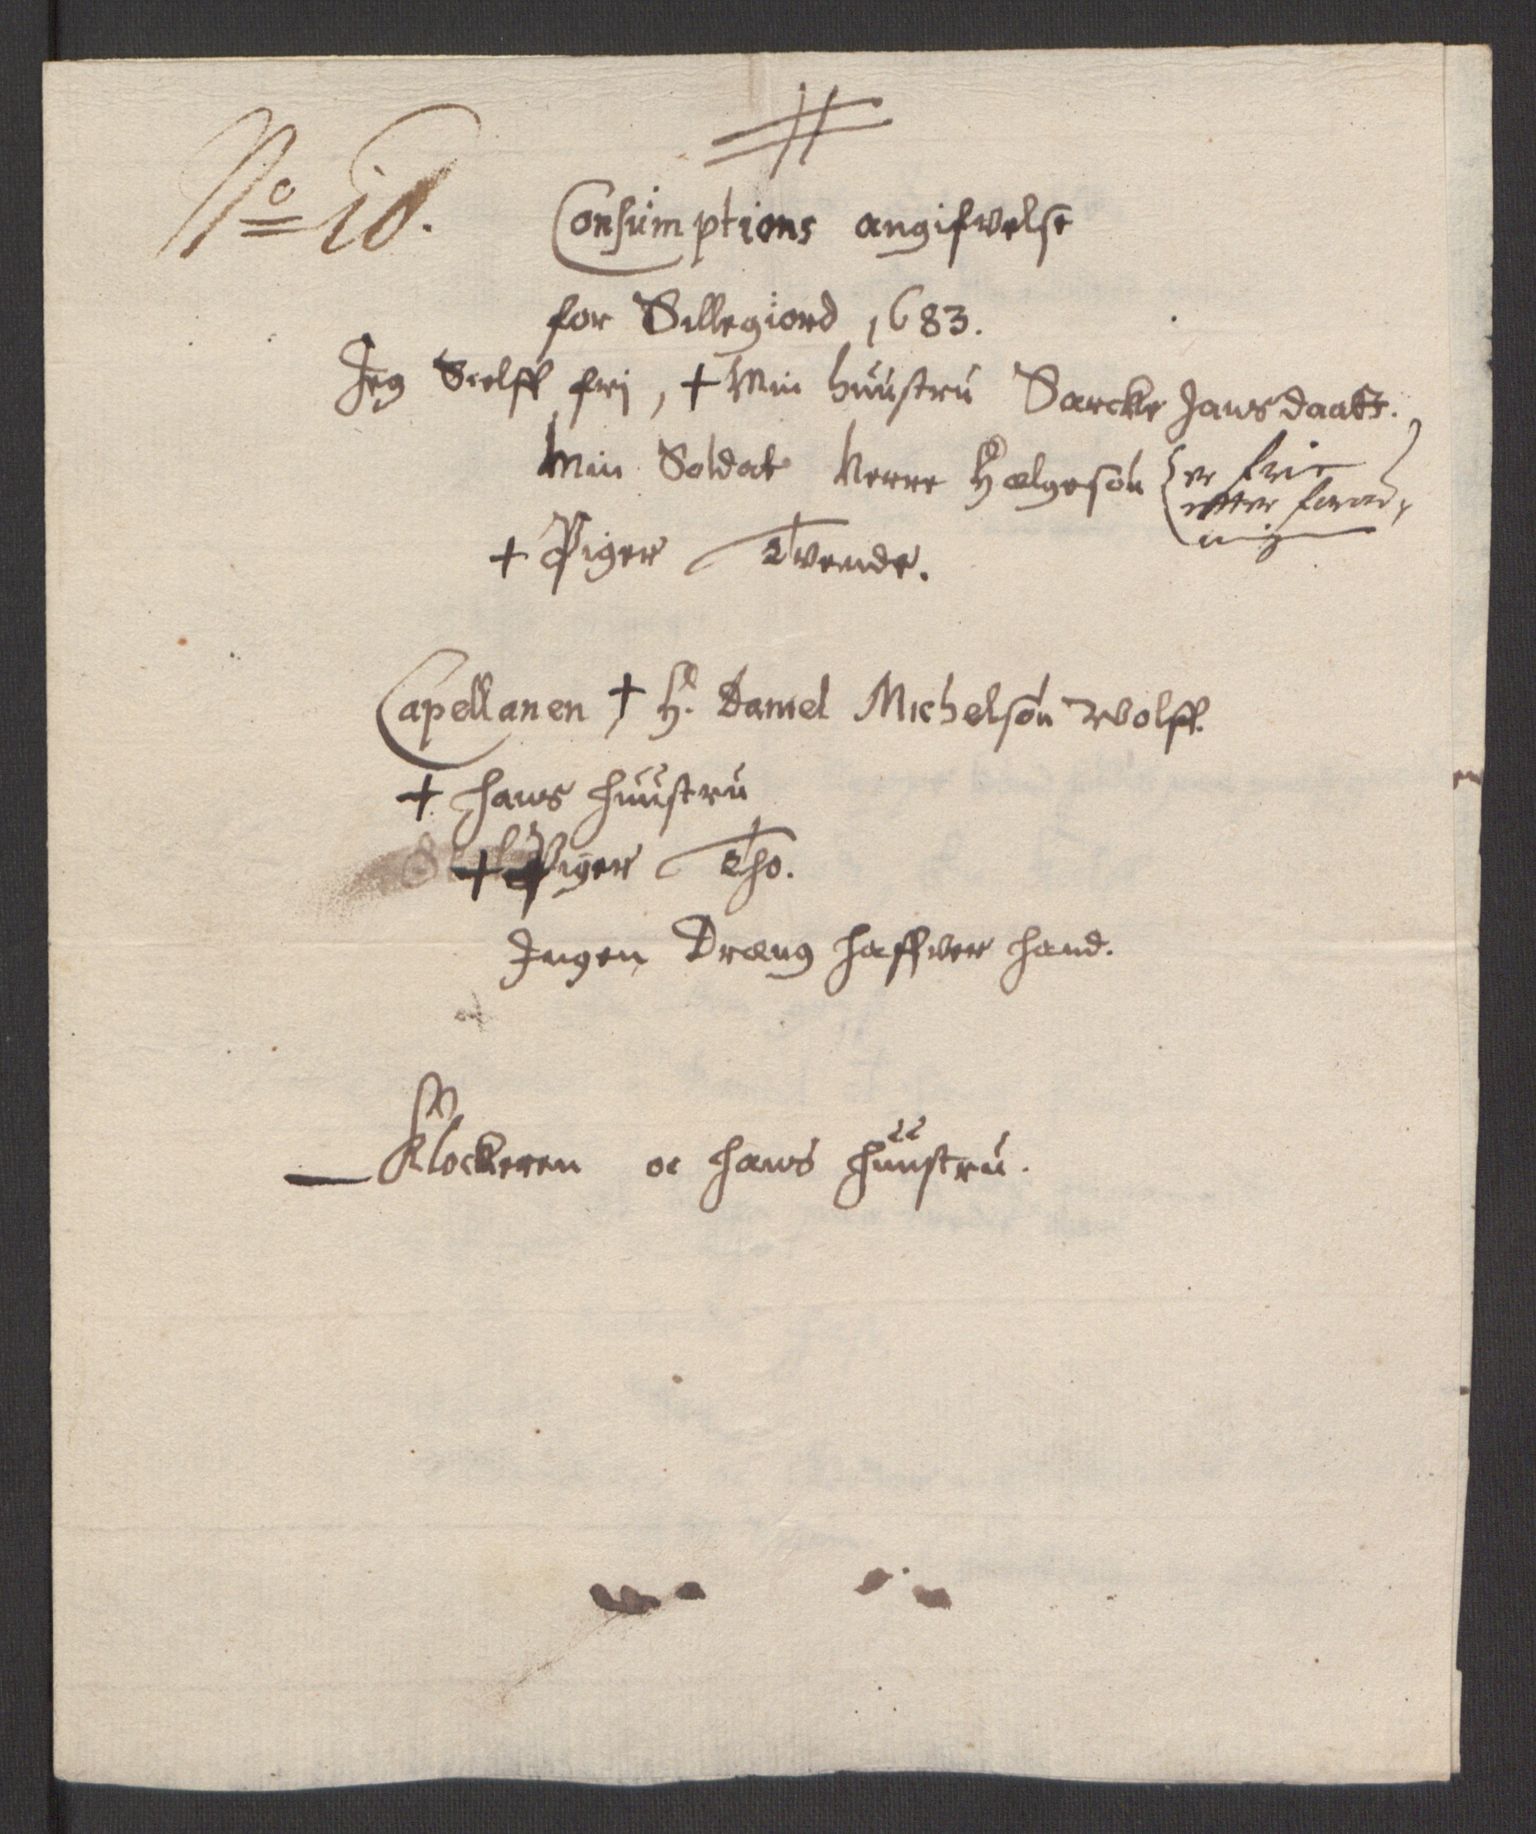 No 10.
Consumptions angifvelse
for Sillegiord 1683.
Jeg Sielff fri, + Min huustru Sarcke Jansdaatt.
Min Soldat Verre Hælgesøn er frie
efter forord,
ning
+ Piger Tvende.
Capellanen + H. Daniel Michelsøn Wolff.
+ hans huustru
+ Piger Tho.
Ingen Dræng haffver hand.
Klockeren oc hans huustru.